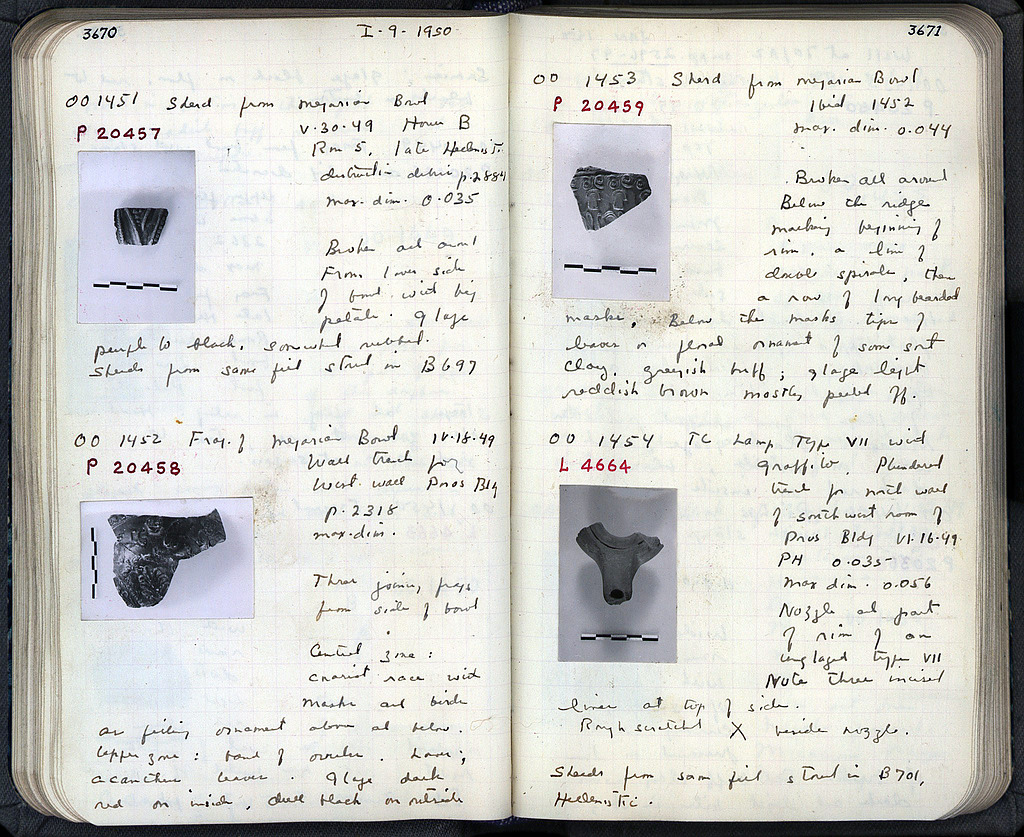 3670
I-9-1950
OO 1451 Sherd from Megarian Bowl
P 20457
V.30.49 House B
Rm 5, late Hellenist.
destruction debris p.2884
max. dim. 0.035
Broken all around
From lower side
of bowl with big
petals. Glaze
purple to black, somewhat rubbed.
Sherds from same fill stored in B697
OO 1452 Frag. of Megarian Bowl IV-18-49
P 20458
Wall trench for
West wall Poros Bldg
p.2318
max. dim.
Three joining frags
from side of bowl
Central zone:
chariot race with
masks and birds
as filling ornament above and below.
Upper zone: band of ovules. Lower;
acanthus leaves. Glaze dark
red on inside, dull black on outside
3671
OO 1453 Sherd from Megarian Bowl
P 20459
Ibid 1452
max. dim. 0.044
Broken all around
Below the ridge
marking beginning of
rim, a line of
double spirals, then
a row of long bearded
masks. Below the masks tips of
leaves or floral ornament of some sort
Clay, greyish buff; glaze light
reddish brown mostly peeled off.
OO 1454 TC Lamp Type VII with
L 4664
graffito. Plundered
trench for north wall
of southwest room of
Poros Bldg VI-16-49
PH 0.035
Max dim. 0.056
Nozzle and part
of rim of an
unglazed type VII
Note three incised
lines at top of side.
Rough scratched X beside nozzle.
Sherds from same fill stored in B701,
Hellenistic.